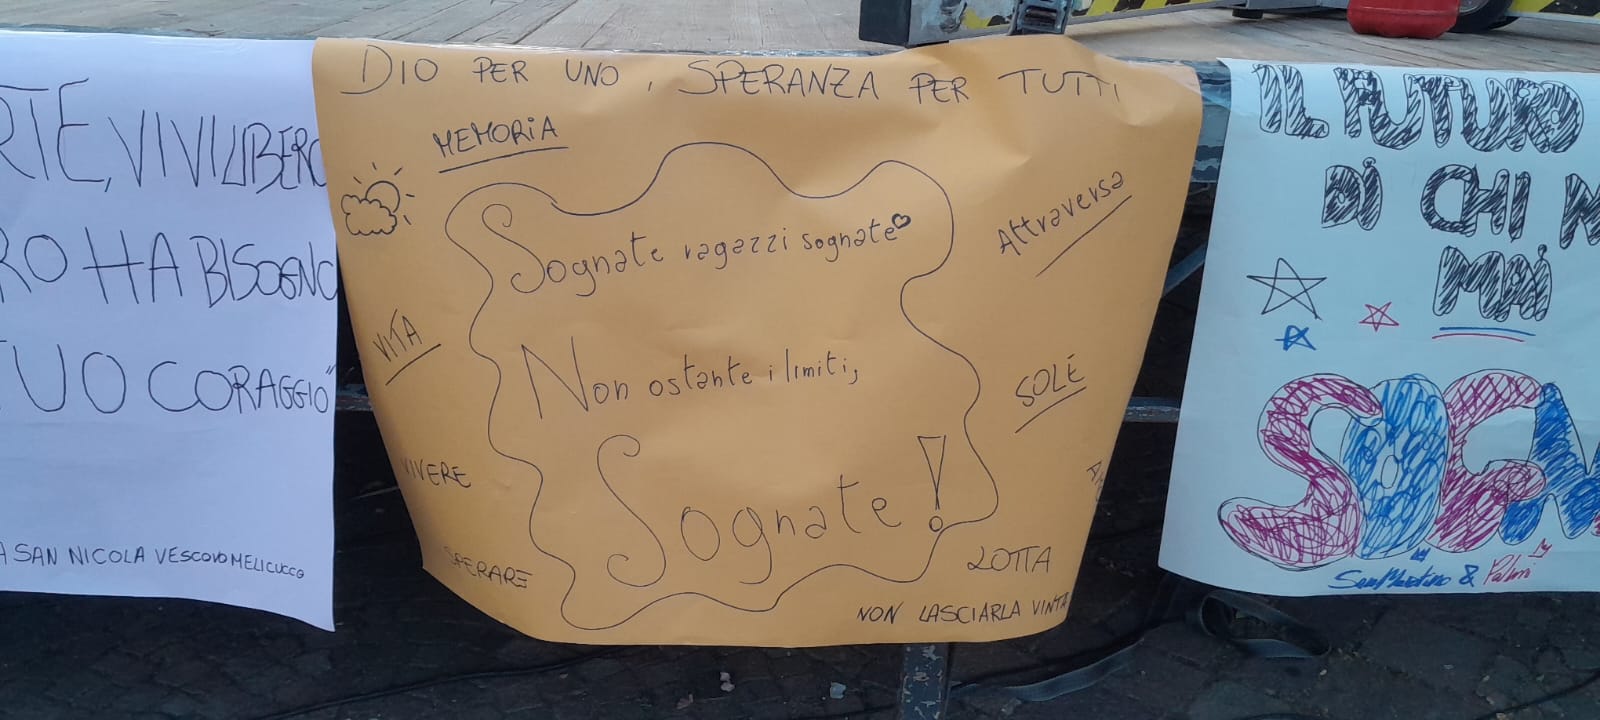 VIVI LIBERO
HA BISOGNO
CORAGGIO"
SAN NICOLA VESCOVO MELICUCCO
DIO PER UNO, SPERANZA PER TUTTI
MEMORIA
Attraversa
Sognate ragazzi sognate
VITA
Non ostante i limiti,
SOLÉ
VIVERE
Sognate!
SPERARE
LOTTA
NON LASCIARLA VINTA
IL FUTURO
DÌ CHI
MAÌ
San Martino & Palmi